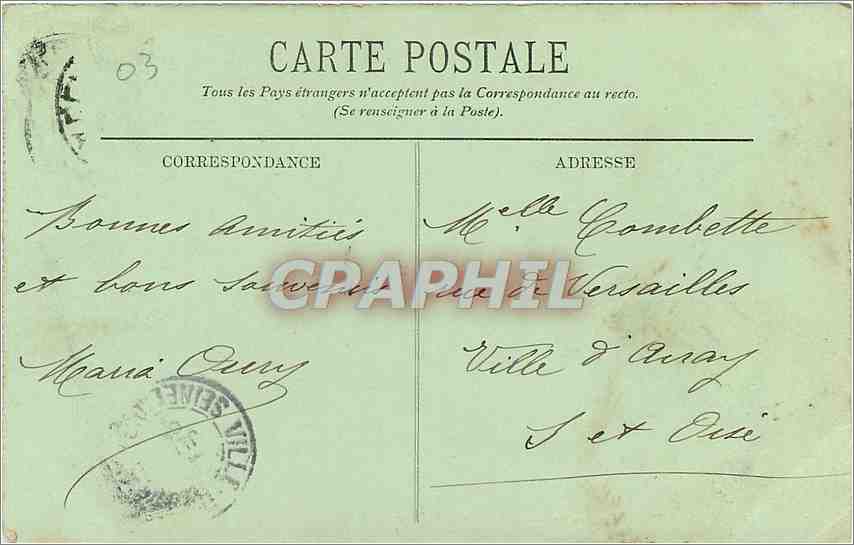 03
CARTE POSTALE
Tous les Pays étrangers n'acceptent pas la Correspondance au recto.
(Se renseigner à la Poste).
CORRESPONDANCE
ADRESSE
Bonnes amitiés
et bons souvenirs
Maria
Melle Combette
rue de Versailles
Ville d'Avray
S et Oise
CPAPHIL
VILLE
SEINE